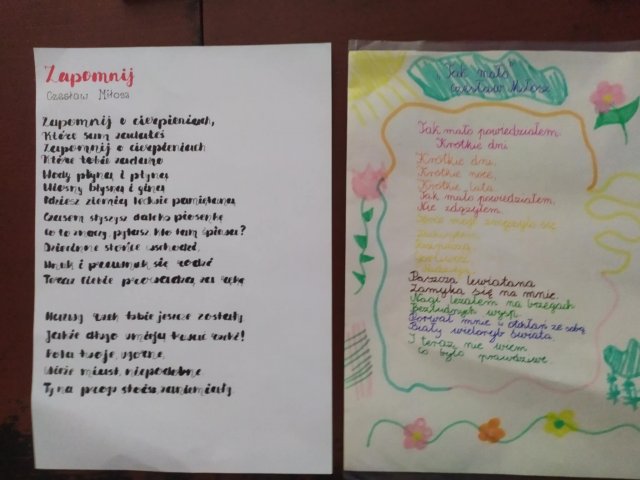 Zapomnij
Czesław Miłosz
Zapomnij o cierpieniach,
Które sam zadałeś
Zapomnij o cierpieniach
Które tobie zadano
Wody płyną i płyną
Wiosny błysną i giną
Idziesz ziemią ledwie pamiętaną
Czasem słyszysz daleką piosenkę
Co to znaczy, pytasz, kto tam śpiewa?
Dziecinne słońce wschodzi,
Wnuk i prawnuk się rodzi
Teraz ciebie prowadzą za rękę
Nazwy rzek tobie jeszcze zostały
Jakże długo umieją trwać rzeki!
Pola twoje ugorne
Wieże miast niepodobne
Ty na progu stoisz zaniemiały.
"Tak mało"
Czesław Miłosz
Tak mało powiedziałem.
Krótkie dni
Krótkie dni,
Krótkie noce,
Krótkie lata
Tak mało powiedziałem,
Nie zdążyłem.
zmęczyło się
Zachwytem
Rozpaczą
Nadzieją
Paszcza lewiatana
Zamyka się na mnie.
Nagi leżałem na brzegach
Bezludnych wysp.
Porwał mnie w otchłań ze sobą
Biały wieloryb świata.
I teraz nie wiem
Co było prawdziwe